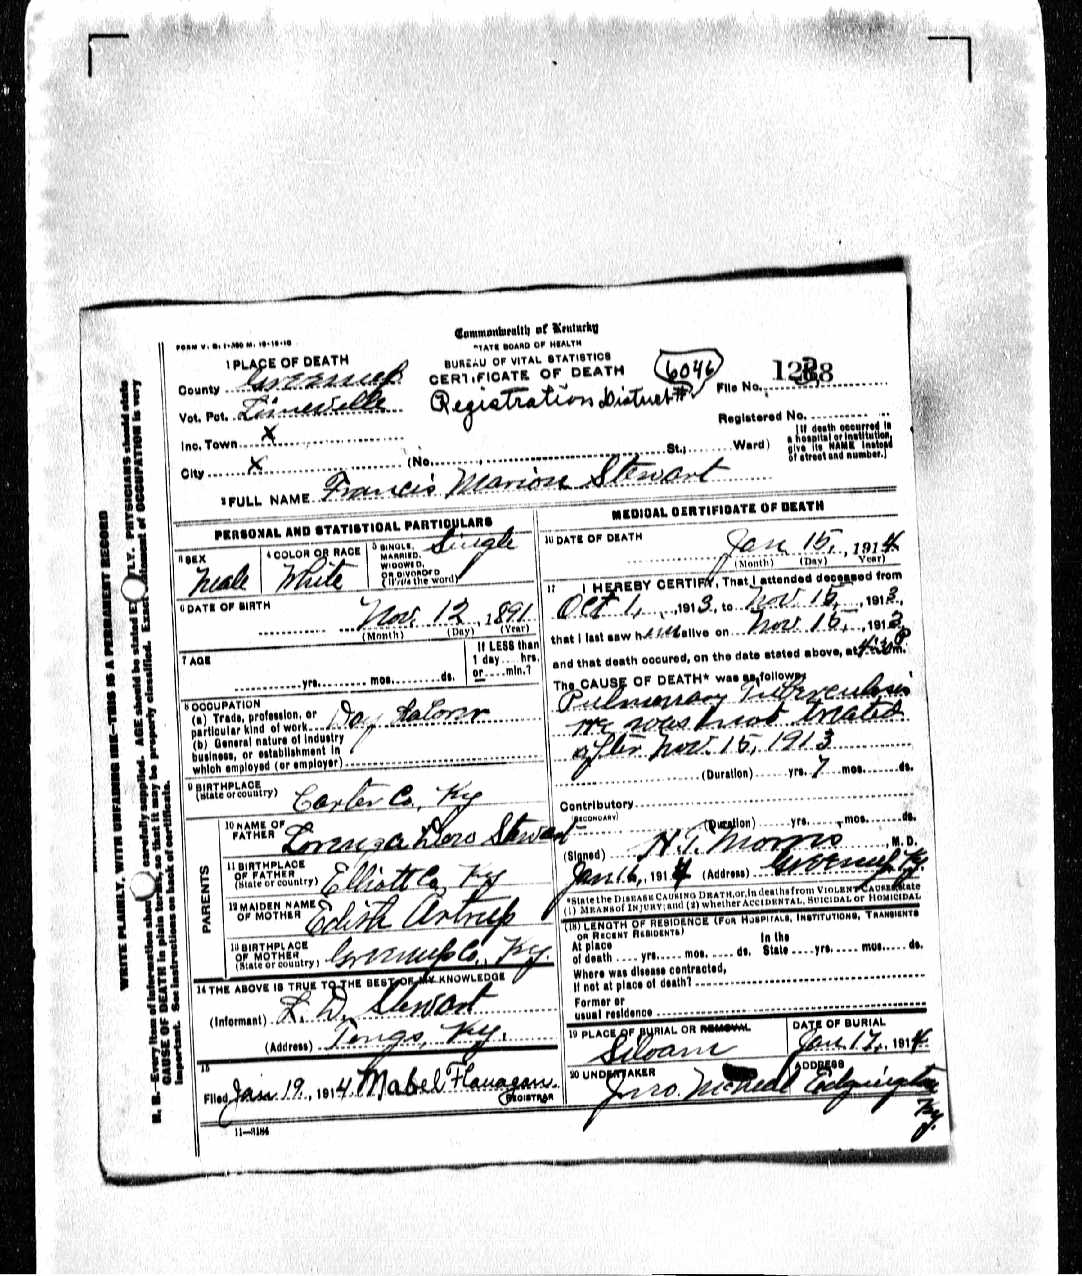 Commonwealth of Kentucky
FORM V. S. 1
STATE BOARD OF HEALTH
BUREAU OF VITAL STATISTICS
CERTIFICATE OF DEATH
6046
Registration District #
File No. 1238
Registered No.
1 PLACE OF DEATH
County Greenup
Vot. Pct. Limeville
Inc. Town x
City x (No. , St.; Ward)
[If death occurred in a hospital or institution, give its NAME instead of street and number.]
2 FULL NAME Francis Marion Stewart
PERSONAL AND STATISTICAL PARTICULARS
3 SEX Male
4 COLOR OR RACE White
5 SINGLE, MARRIED, WIDOWED, OR DIVORCED (Write the word) Single
6 DATE OF BIRTH Nov. 12, 1891
(Month) (Day) (Year)
7 AGE
yrs. mos. ds.
If LESS than 1 day hrs. or min.?
8 OCCUPATION
(a) Trade, profession, or particular kind of work Day Laborer
(b) General nature of industry business, or establishment in which employed (or employer)
9 BIRTHPLACE (State or country) Carter Co., Ky
PARENTS
10 NAME OF FATHER Lorenza Dow Stewart
11 BIRTHPLACE OF FATHER (State or country) Elliott Co, Ky
12 MAIDEN NAME OF MOTHER Edith Artrup
13 BIRTHPLACE OF MOTHER (State or country) Greenup Co., Ky.
14 THE ABOVE IS TRUE TO THE BEST OF MY KNOWLEDGE
(Informant) L. D. Stewart
(Address) Tongs, Ky.
15
Filed Jan 19, 1914. Mabel Flanagan.
REGISTRAR
11—3184
MEDICAL CERTIFICATE OF DEATH
16 DATE OF DEATH Jan 15, 1914
(Month) (Day) Year)
17 I HEREBY CERTIFY, That I attended deceased from
Oct 1, 1913, to Nov 15, 1913,
that I last saw him alive on Nov 15, 1913
and that death occured, on the date stated above, at 4:30 P m.
The CAUSE OF DEATH* was as follows:
Pulmonary Tuberculosis
He was not treated
after Nov. 15, 1913
(Duration) yrs. 7 mos. ds.
Contributory
(SECONDARY)
(Duration) yrs. mos. ds.
(Signed) H. T. Morris, M. D.
Jan 16, 1914 (Address) Greenup, Ky.
*State the DISEASE CAUSING DEATH, or, in deaths from VIOLENT CAUSES, state
(1) MEANS of INJURY; and (2) whether ACCIDENTAL, SUICIDAL or HOMICIDAL
(18) LENGTH OF RESIDENCE (FOR HOSPITALS, INSTITUTIONS, TRANSIENTS OR RECENT RESIDENTS)
At place of death yrs. mos. ds. In the State yrs. mos. ds.
Where was disease contracted,
If not at place of death?
Former or
usual residence
19 PLACE OF BURIAL OR REMOVAL Siloam
DATE OF BURIAL Jan 17, 1914
20 UNDERTAKER Jno. McNeal
ADDRESS Edgington Ky.
WRITE PLAINLY, WITH UNFADING INK—THIS IS A PERMANENT RECORD
N. B.—Every item of information should be carefully supplied. AGE should be stated EXACTLY. PHYSICIANS should state
CAUSE OF DEATH in plain terms, so that it may be properly classified. Exact statement of OCCUPATION is very
important. See instructions on back of certificate.